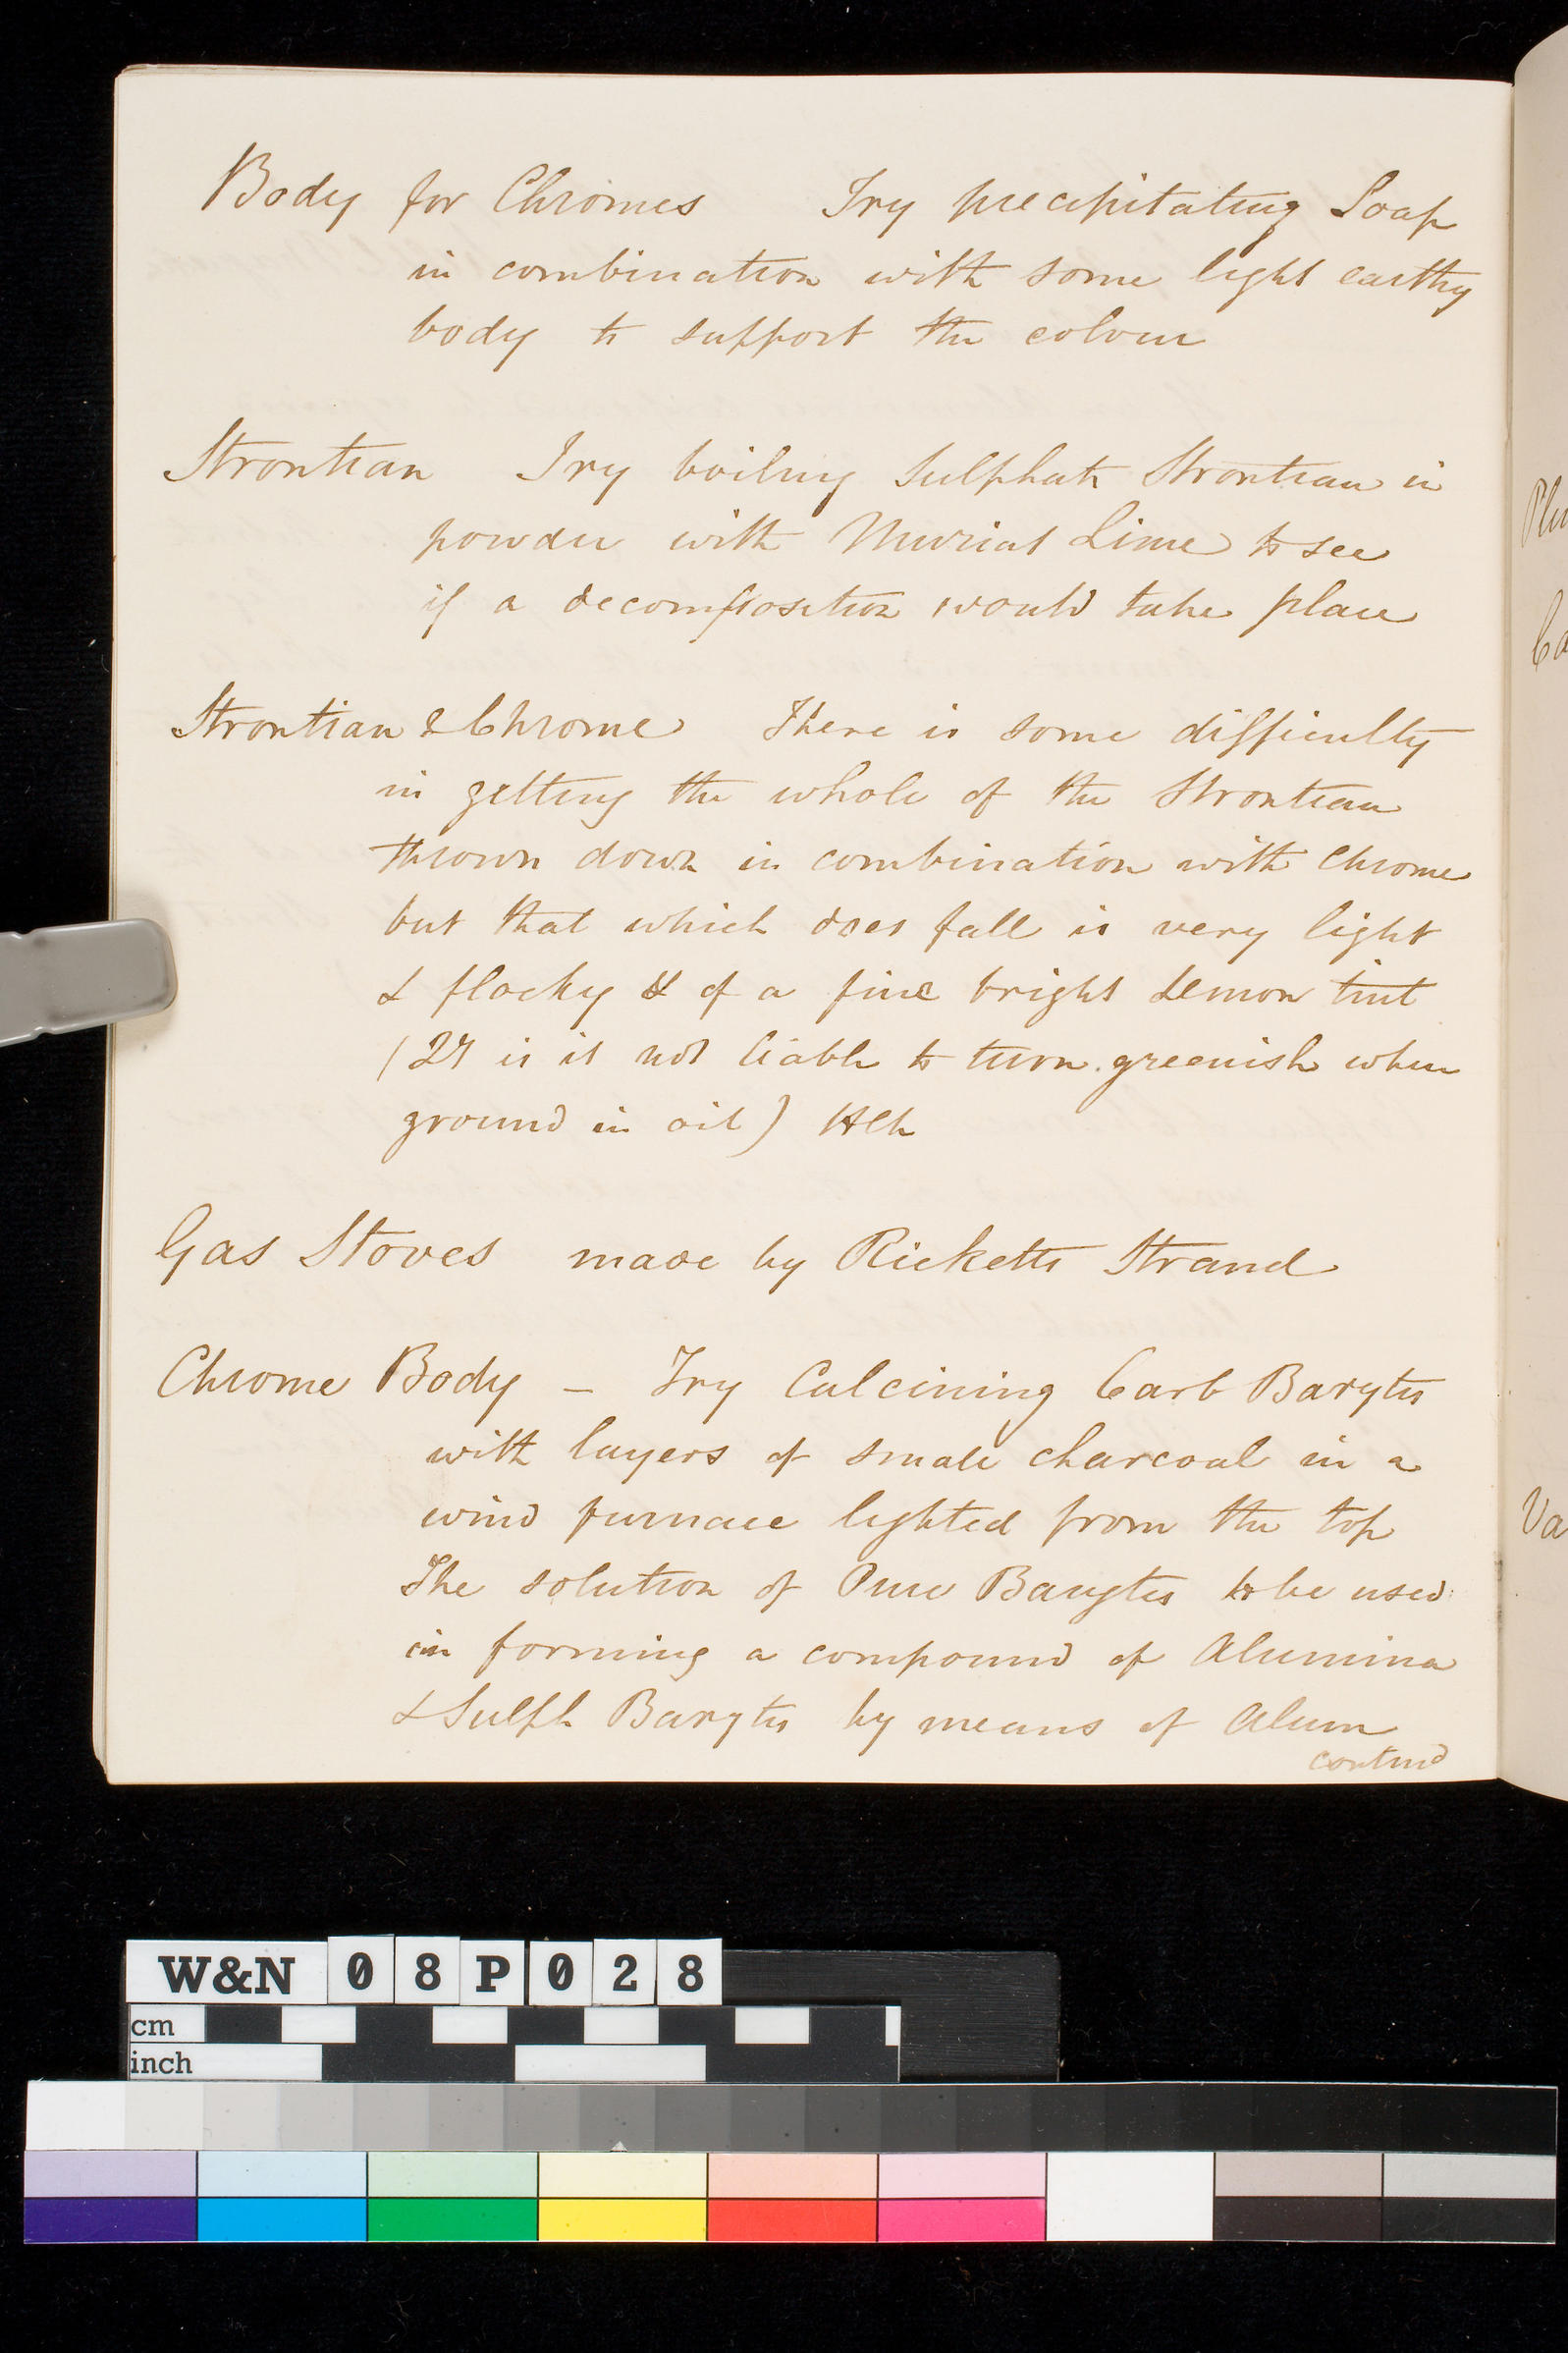 Body for Chromes Try precipitating Soap
in combination with some light earthy
body to support the colour
Strontian Try boiling Sulphate Strontian in
powder with Muriat Lime to see
if a decomposition would take place
Strontian & Chrome There is some difficulty
in getting the whole of the Strontian
thrown down in combination with Chrome
but that which does fall is very light
& flocky & of a fine bright Lemon tint
is it not liable to turn greenish when
ground in oil)
Gas Stoves made by Ricketts Strand
Chrome Body – Try Calcining Carb Barytes
with layers of small charcoal in a
wind furnace lighted from the top
The solution of Pure Barytes to be used
in forming a compound of Alumina
& Sulph Barytes by means of Alum
contind
Ca
Va
W&N 08P028
cm
inch